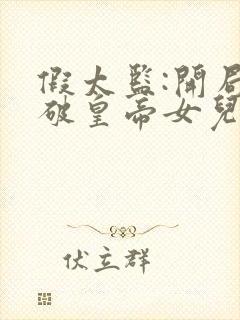 假太監:開局
破皇帝女兒
伏立群